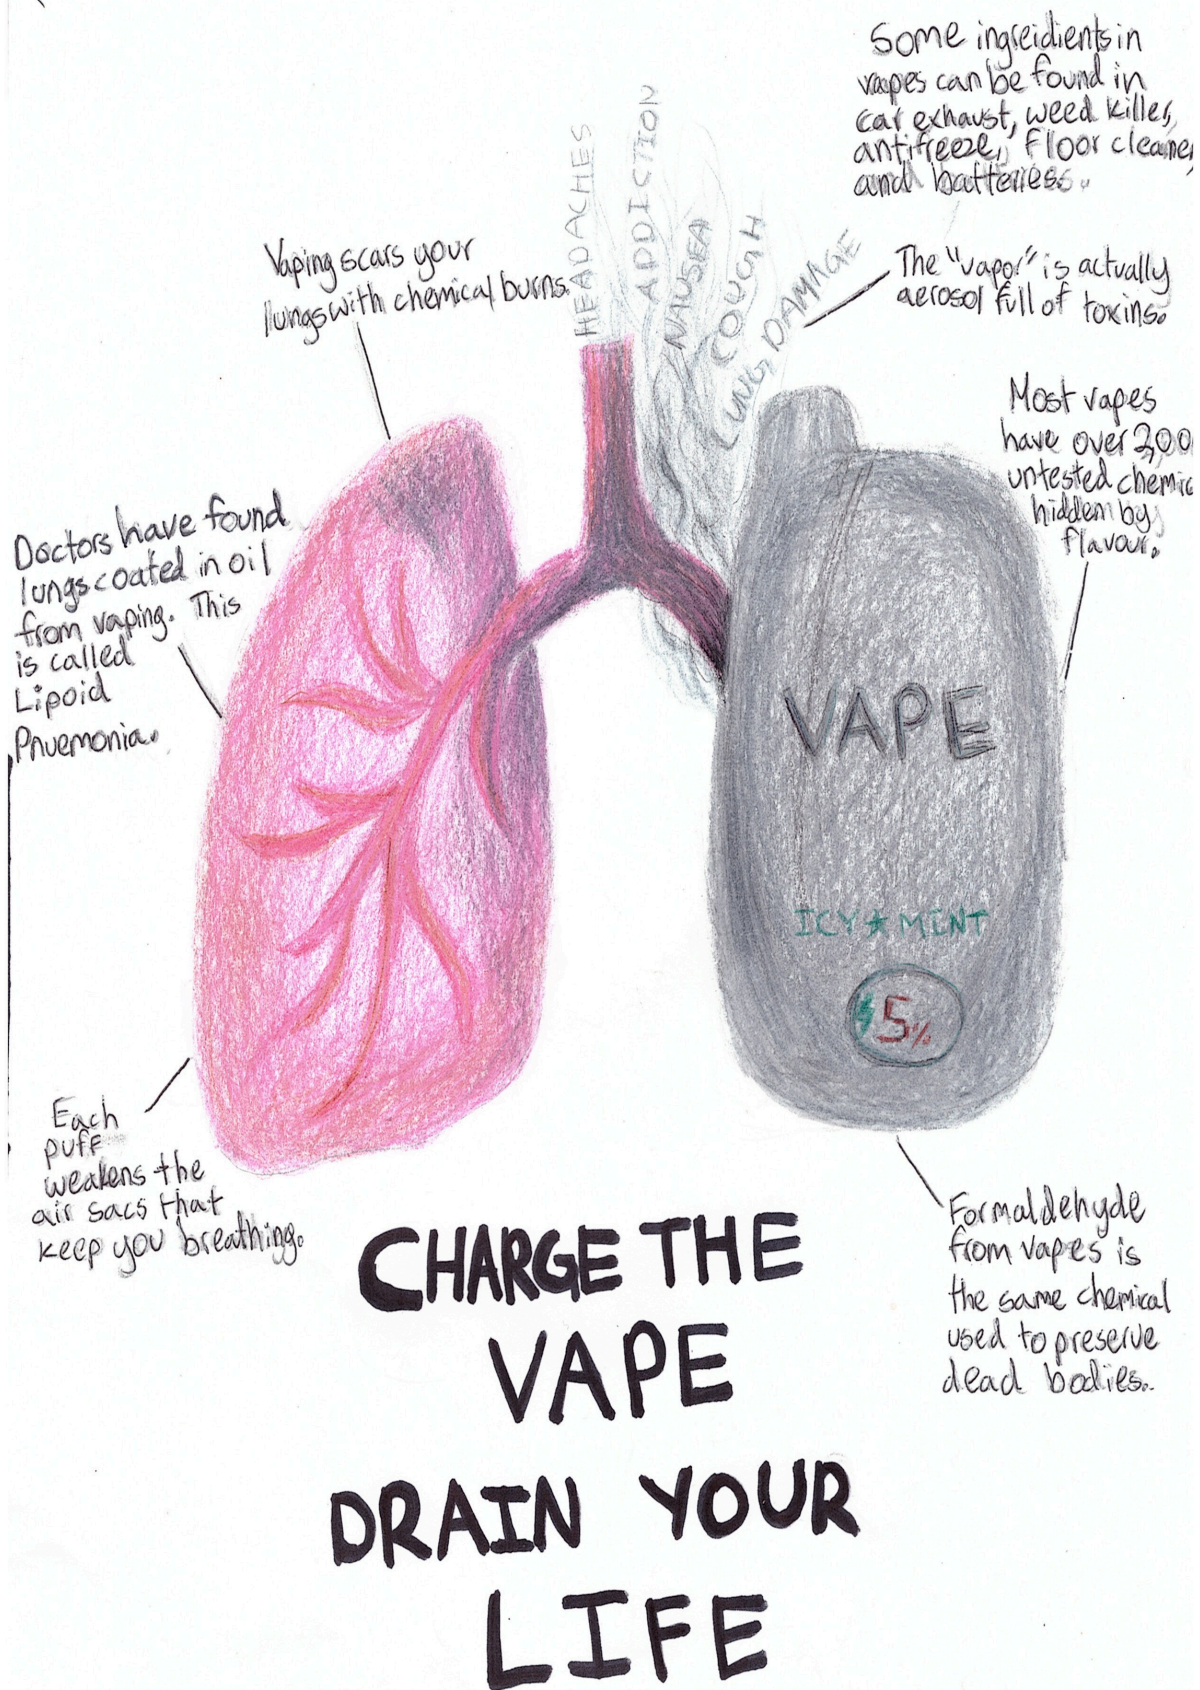 Some ingreidients in
vapes can be found in
car exhaust, weed killer,
antifreeze, floor cleaner,
and batteries.
HEADACHES
ADDICTION
NAUSEA
COUGH
LUNG DAMAGE
Vaping scars your
lungs with chemical burns.
The "vapor" is actually
aerosol full of toxins.
Most vapes
have over
untested
hidden by
flavour.
Doctors have found
lungs coated in oil
from vaping. This
is called
Lipoid
Pnuemonia.
VAPE
ICY MINT
5%
Each
puff
weakens the
air sacs that
keep you breathing.
Formaldehyde
from vapes is
the same chemical
used to preserve
dead bodies.
CHARGE THE
VAPE
DRAIN YOUR
LIFE